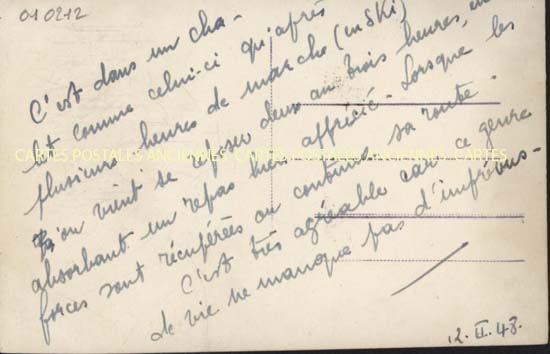 010212
C'est dans un cha-
let comme celui-ci qu'après
plusieurs heures de marche (en Ski)
qu'on vient se reposer deux ou trois heures, en
absorbant un repas bien apprécié. Lorsque les
forces sont récupérées on continue sa route.
C'est très agréable car ce genre
de vie ne manque pas d'imprévus-
CARTES POSTALES ANCIENNES CARTES POSTALES ANCIENNES CARTES
12.II.48.